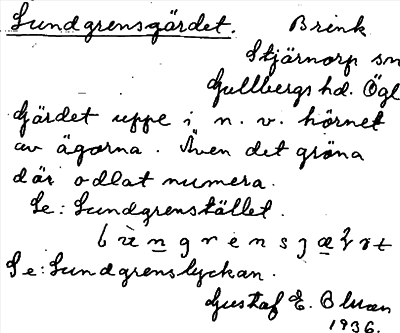 Sundgrensgärdet. Brink
Stjärnorp sn
Gullbergs hd. Ögl
Gärdet uppe i n. v. hörnet
av ägorna. Även det gröna
där odlat numera.
Se: Sundgrenstället.
Se: Sundgrenslyckan.
Gustaf E. Bluan
1936.